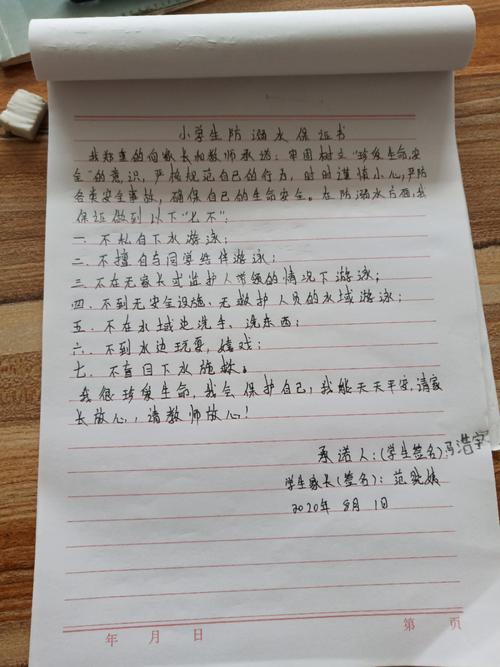 小学生防溺水保证书
我郑重的向家长和教师承诺：牢固树立“珍爱生命，安
全”的意识，严格规范自己的行为，时时谨慎小心，严防
各类安全事故，确保自己的生命安全。在防溺水方面，我
保证做到以下“七不”：
一 不私自下水游泳；
二 . 不擅自与同学结伴游泳；
三 . 不在无家长或监护人带领的情况下游泳；
四 . 不到无安全设施、无救护人员的水域游泳；
五 . 不在水域边洗手、洗东西；
六 . 不到水边玩耍，嬉戏；
七 . 不盲目下水施救。
我很珍爱生命，我会保护自己，我能天天平安，请家
长放心，请教师放心！
承诺人：(学生签名)冯浩宇
学生家长(签名)：范
2020年 8月 1日
年 月 日 第 页